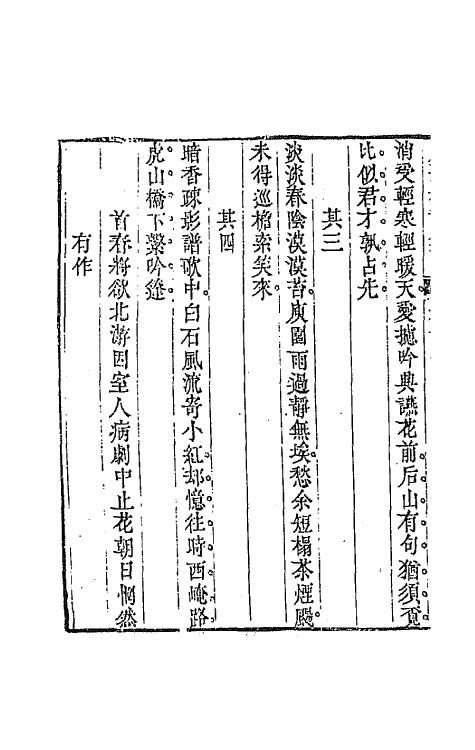 消受輕寒輕暖天愛攄吟興讌花前。后山有句猶須覓。
比似君才孰占先。
其三
淡淡春陰漠漠苔。庾園雨過靜無埃。愁余短榻茶煙颺。
未得巡檐索笑來。
其四
暗香疎影譜歌中。白石風流寄小紅。却憶往時西崦路。
虎山橋下繫吟篷。
首春將欲北游因室人病劇中止花朝日惘然
有作